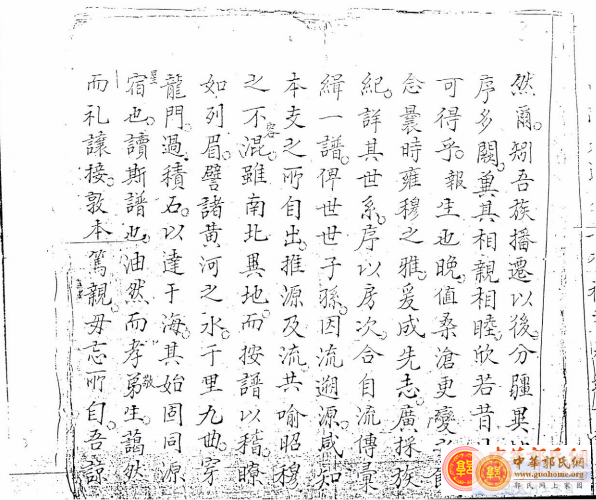 然爾矧吾族播遷以後分疆異
序多闕冀其相親相睦欣若昔
可得乎報生也晚值桑滄更變
念曩時雍穆之雅爰成先志廣採族
紀詳其世系序以房次合自流傳彙
緝一譜俾世世子孫因流遡源咸知
本支之所自出推源及流共喻昭穆
之不容混雖南北異地而按譜以稽瞭
如列眉譬諸黃河之水千里九曲穿
龍門過積石以達于海其始固同源
星宿也讀斯譜也油然而孝敬弟生藹然
而礼讓接敦本篤親毋忘所自吾諒
中華郭氏網
www.guohome.org
郭氏網上家園